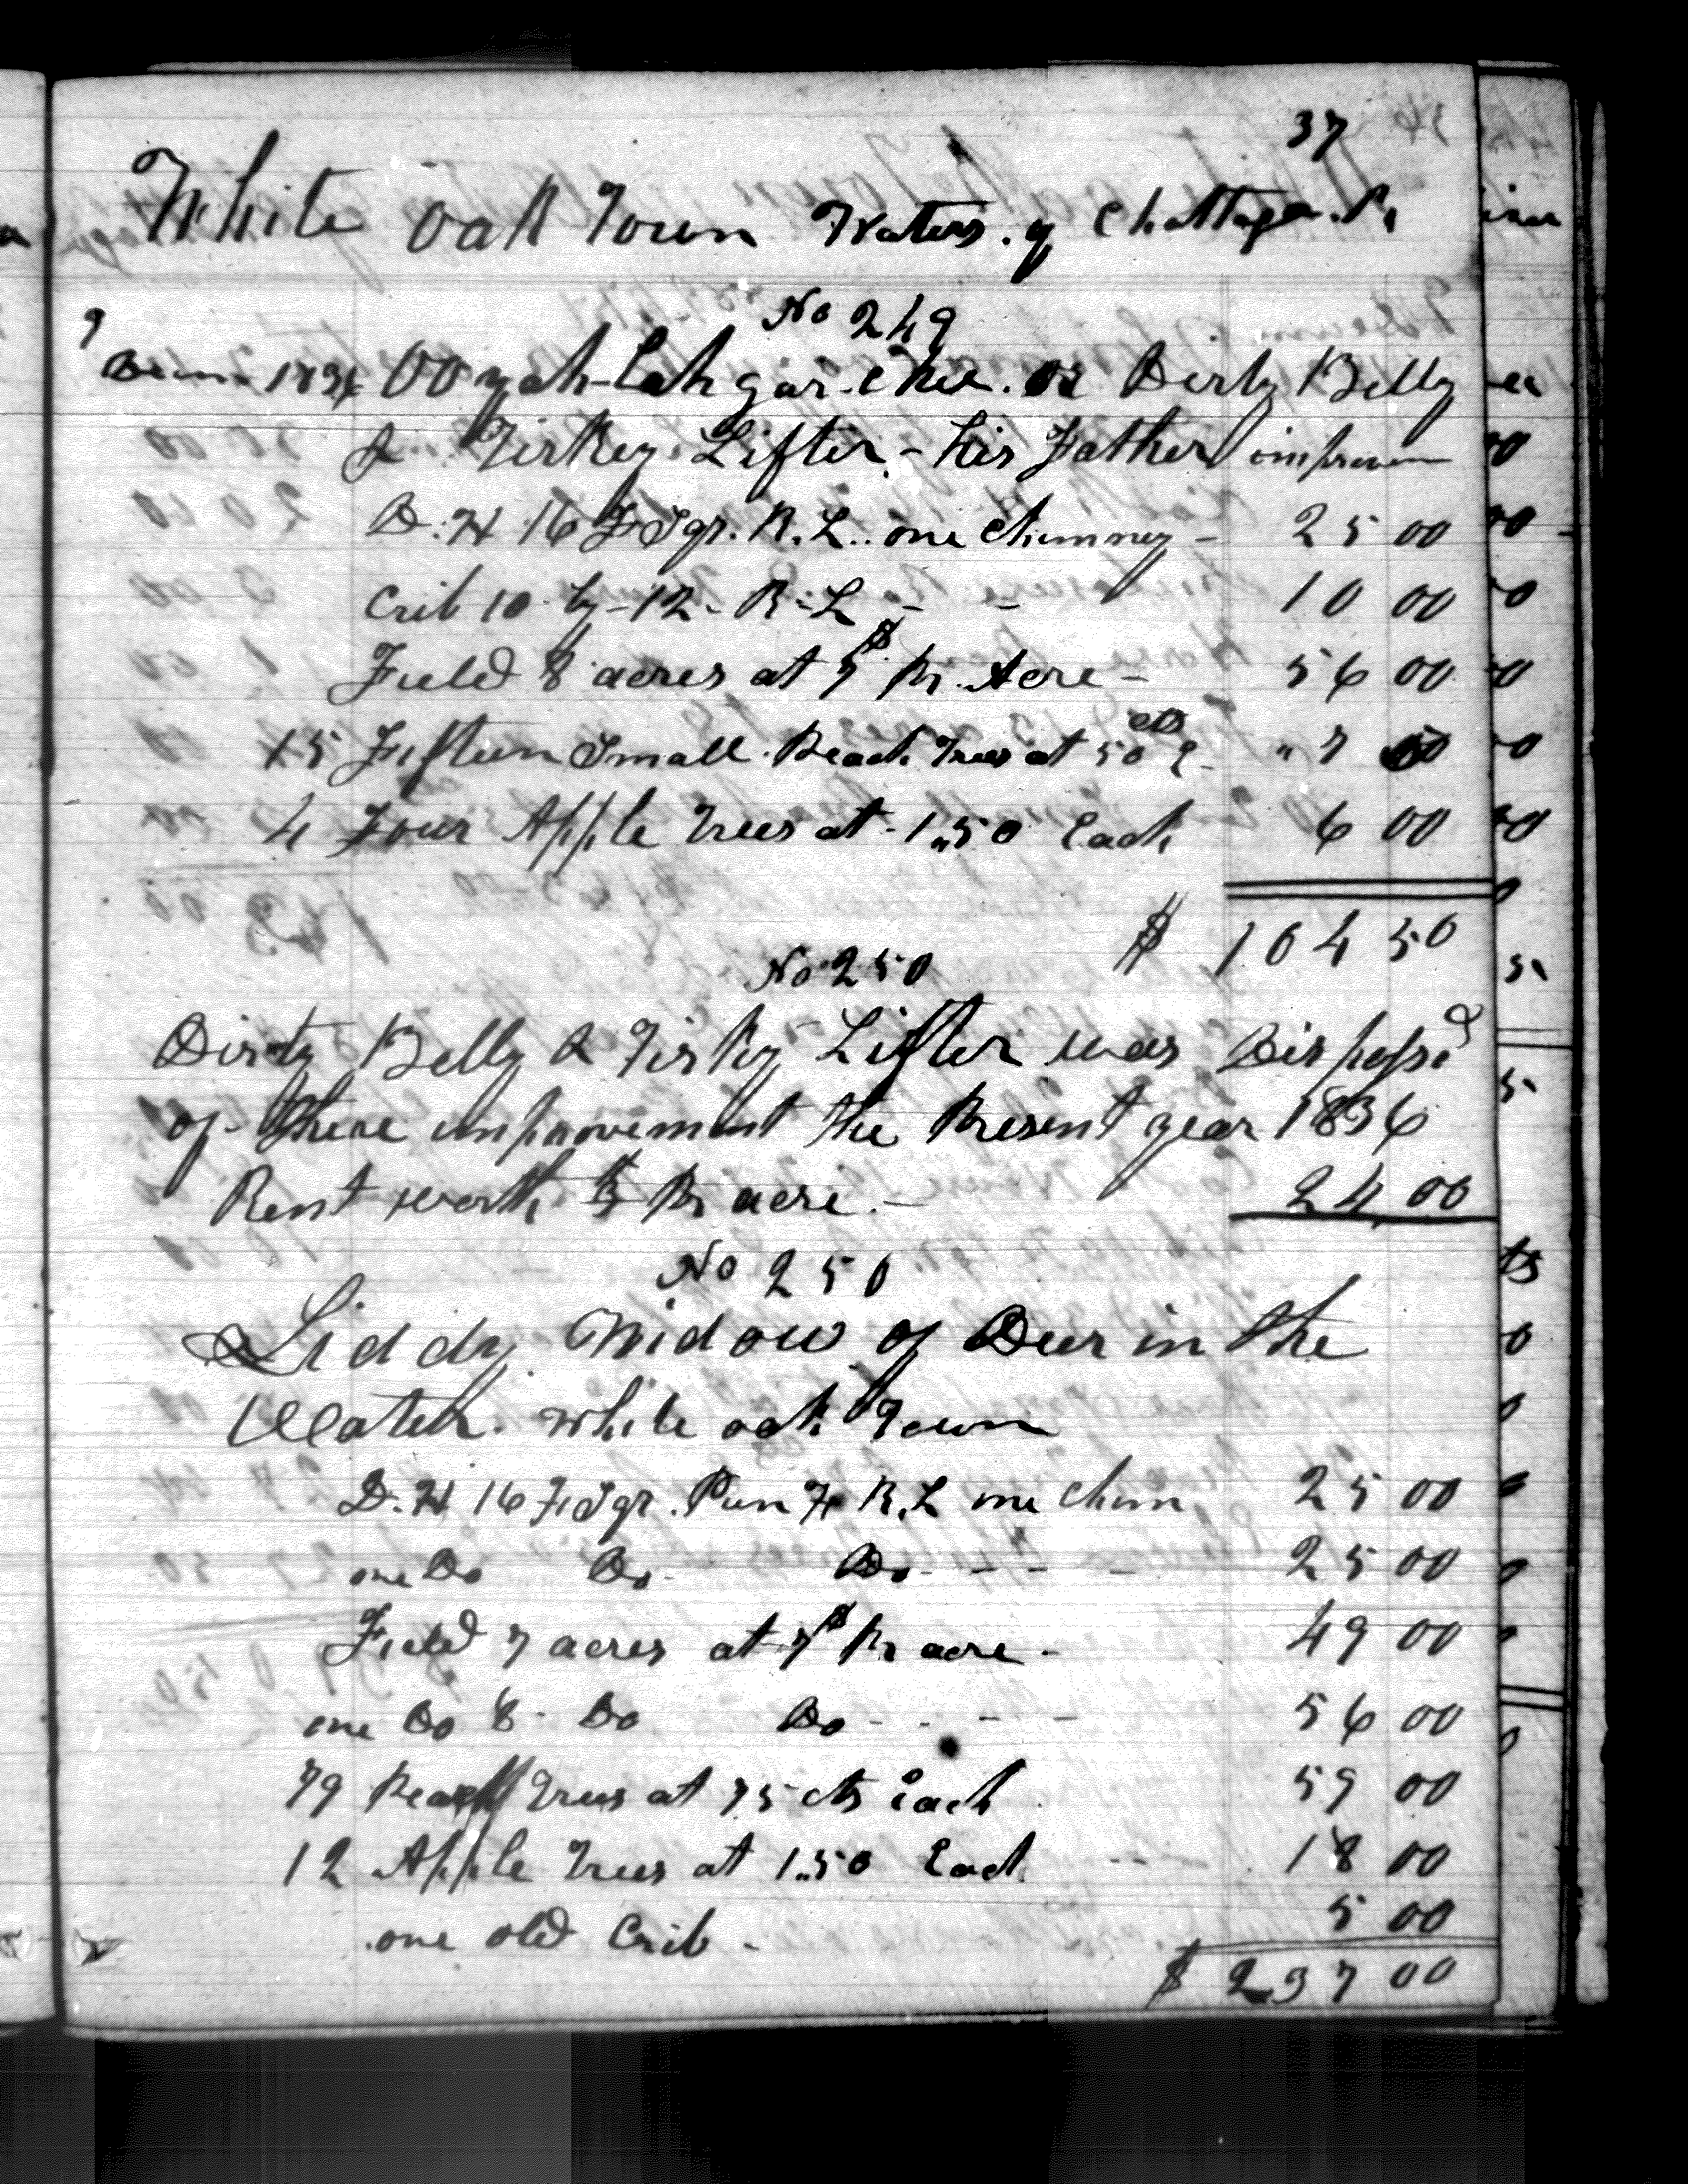 37
White Oak Town Waters of Chattooga R.
No 249
9 Decem 1836 Oo yah-Lah gar-Chee. or Dirty Belly
& Tirkey Lifter - his Father improvem
D. H 16 F Sqr. R. L. one Chimney - 25 00
Crib 10 by 12 - R. L - - 10 00
Field 8 acres at 7$ Pr. Acre - 56 00
15 Fifteen Small Peach Trees at 50 cts " 7 50
4 Four Apple Trees at 1.50 Each 6 00
$ 104 50
No 250
Dirty Belly & Tirkey Lifter was Dispossd
of there improvement the Present year 1836
Rent worth $3 Pr acre. - 24 00
No 250
Liddy Widow of Deer in the
Water. White oak Town
D. H 16 F Sqr. Pun F R. L one Chim 25 00
one Do Do - Do - - - 25 00
Field 7 acres at 7$ Pr acre - 49 00
one Do 8 - Do Do - - - - 56 00
79 Peach Trees at 75 cts Each 59 00
12 Apple Trees at 1.50 Each -- 18 00
one old Crib - 5 00
$ 237 00